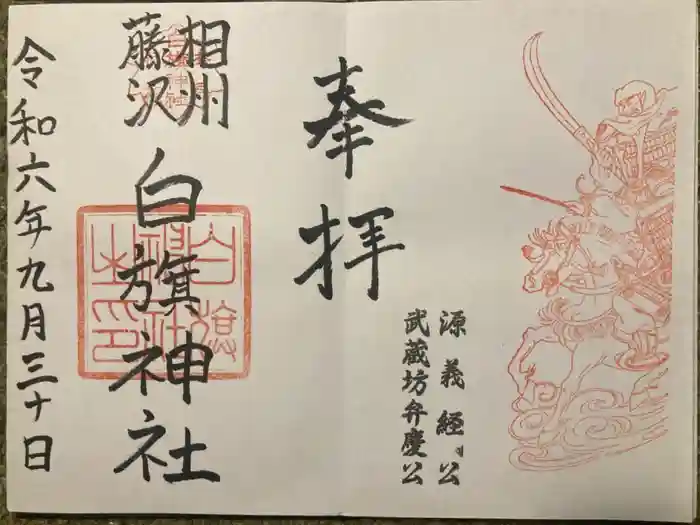 源義経公
武蔵坊弁慶公
奉拝
相州
藤沢
白旗神社
白旗
神社
之印
令和六年九月三十日